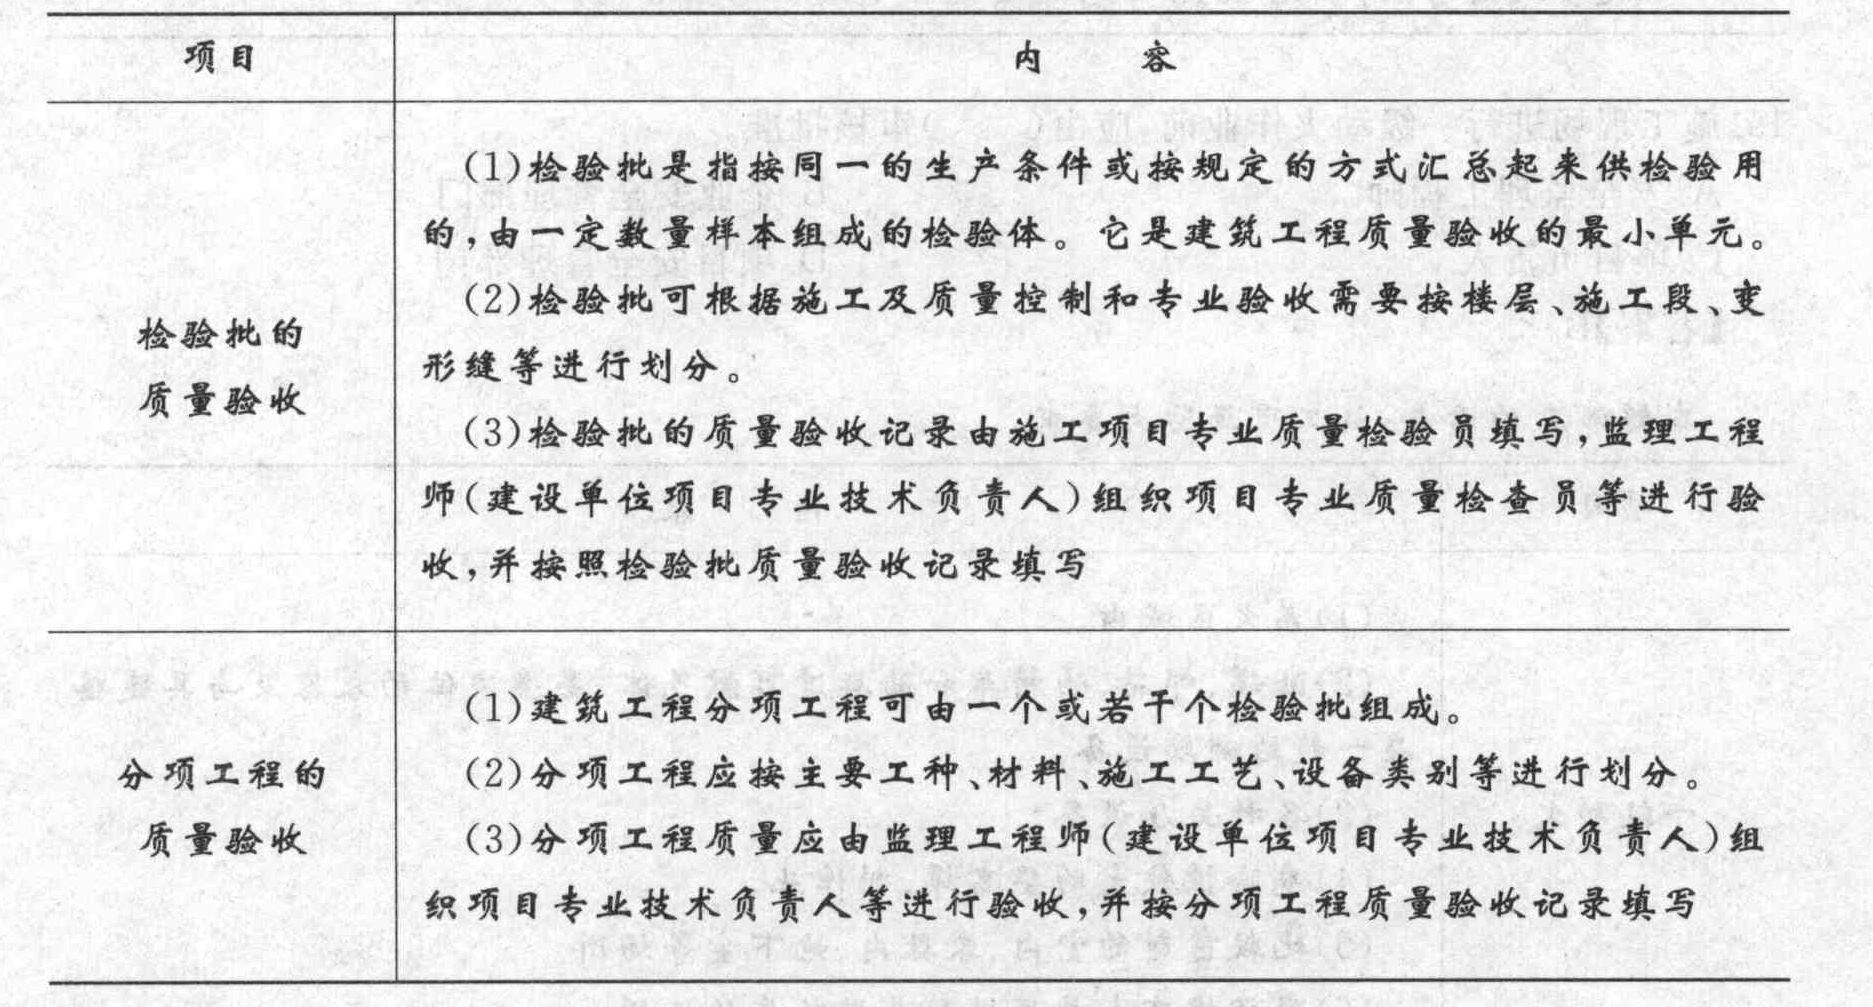 项目
内容
检验批的
质量验收
(1)检验批是指按同一的生产条件或按规定的方式汇总起来供检验用
的,由一定数量样本组成的检验体。它是建筑工程质量验收的最小单元。
(2)检验批可根据施工及质量控制和专业验收需要按楼层、施工段、变
形缝等进行划分。
(3)检验批的质量验收记录由施工项目专业质量检验员填写,监理工程
师(建设单位项目专业技术负责人)组织项目专业质量检查员等进行验
收,并按照检验批质量验收记录填写
分项工程的
质量验收
(1)建筑工程分项工程可由一个或若干个检验批组成。
(2)分项工程应按主要工种、材料、施工工艺、设备类别等进行划分。
(3)分项工程质量应由监理工程师(建设单位项目专业技术负责人)组
织项目专业技术负责人等进行验收,并按分项工程质量验收记录填写